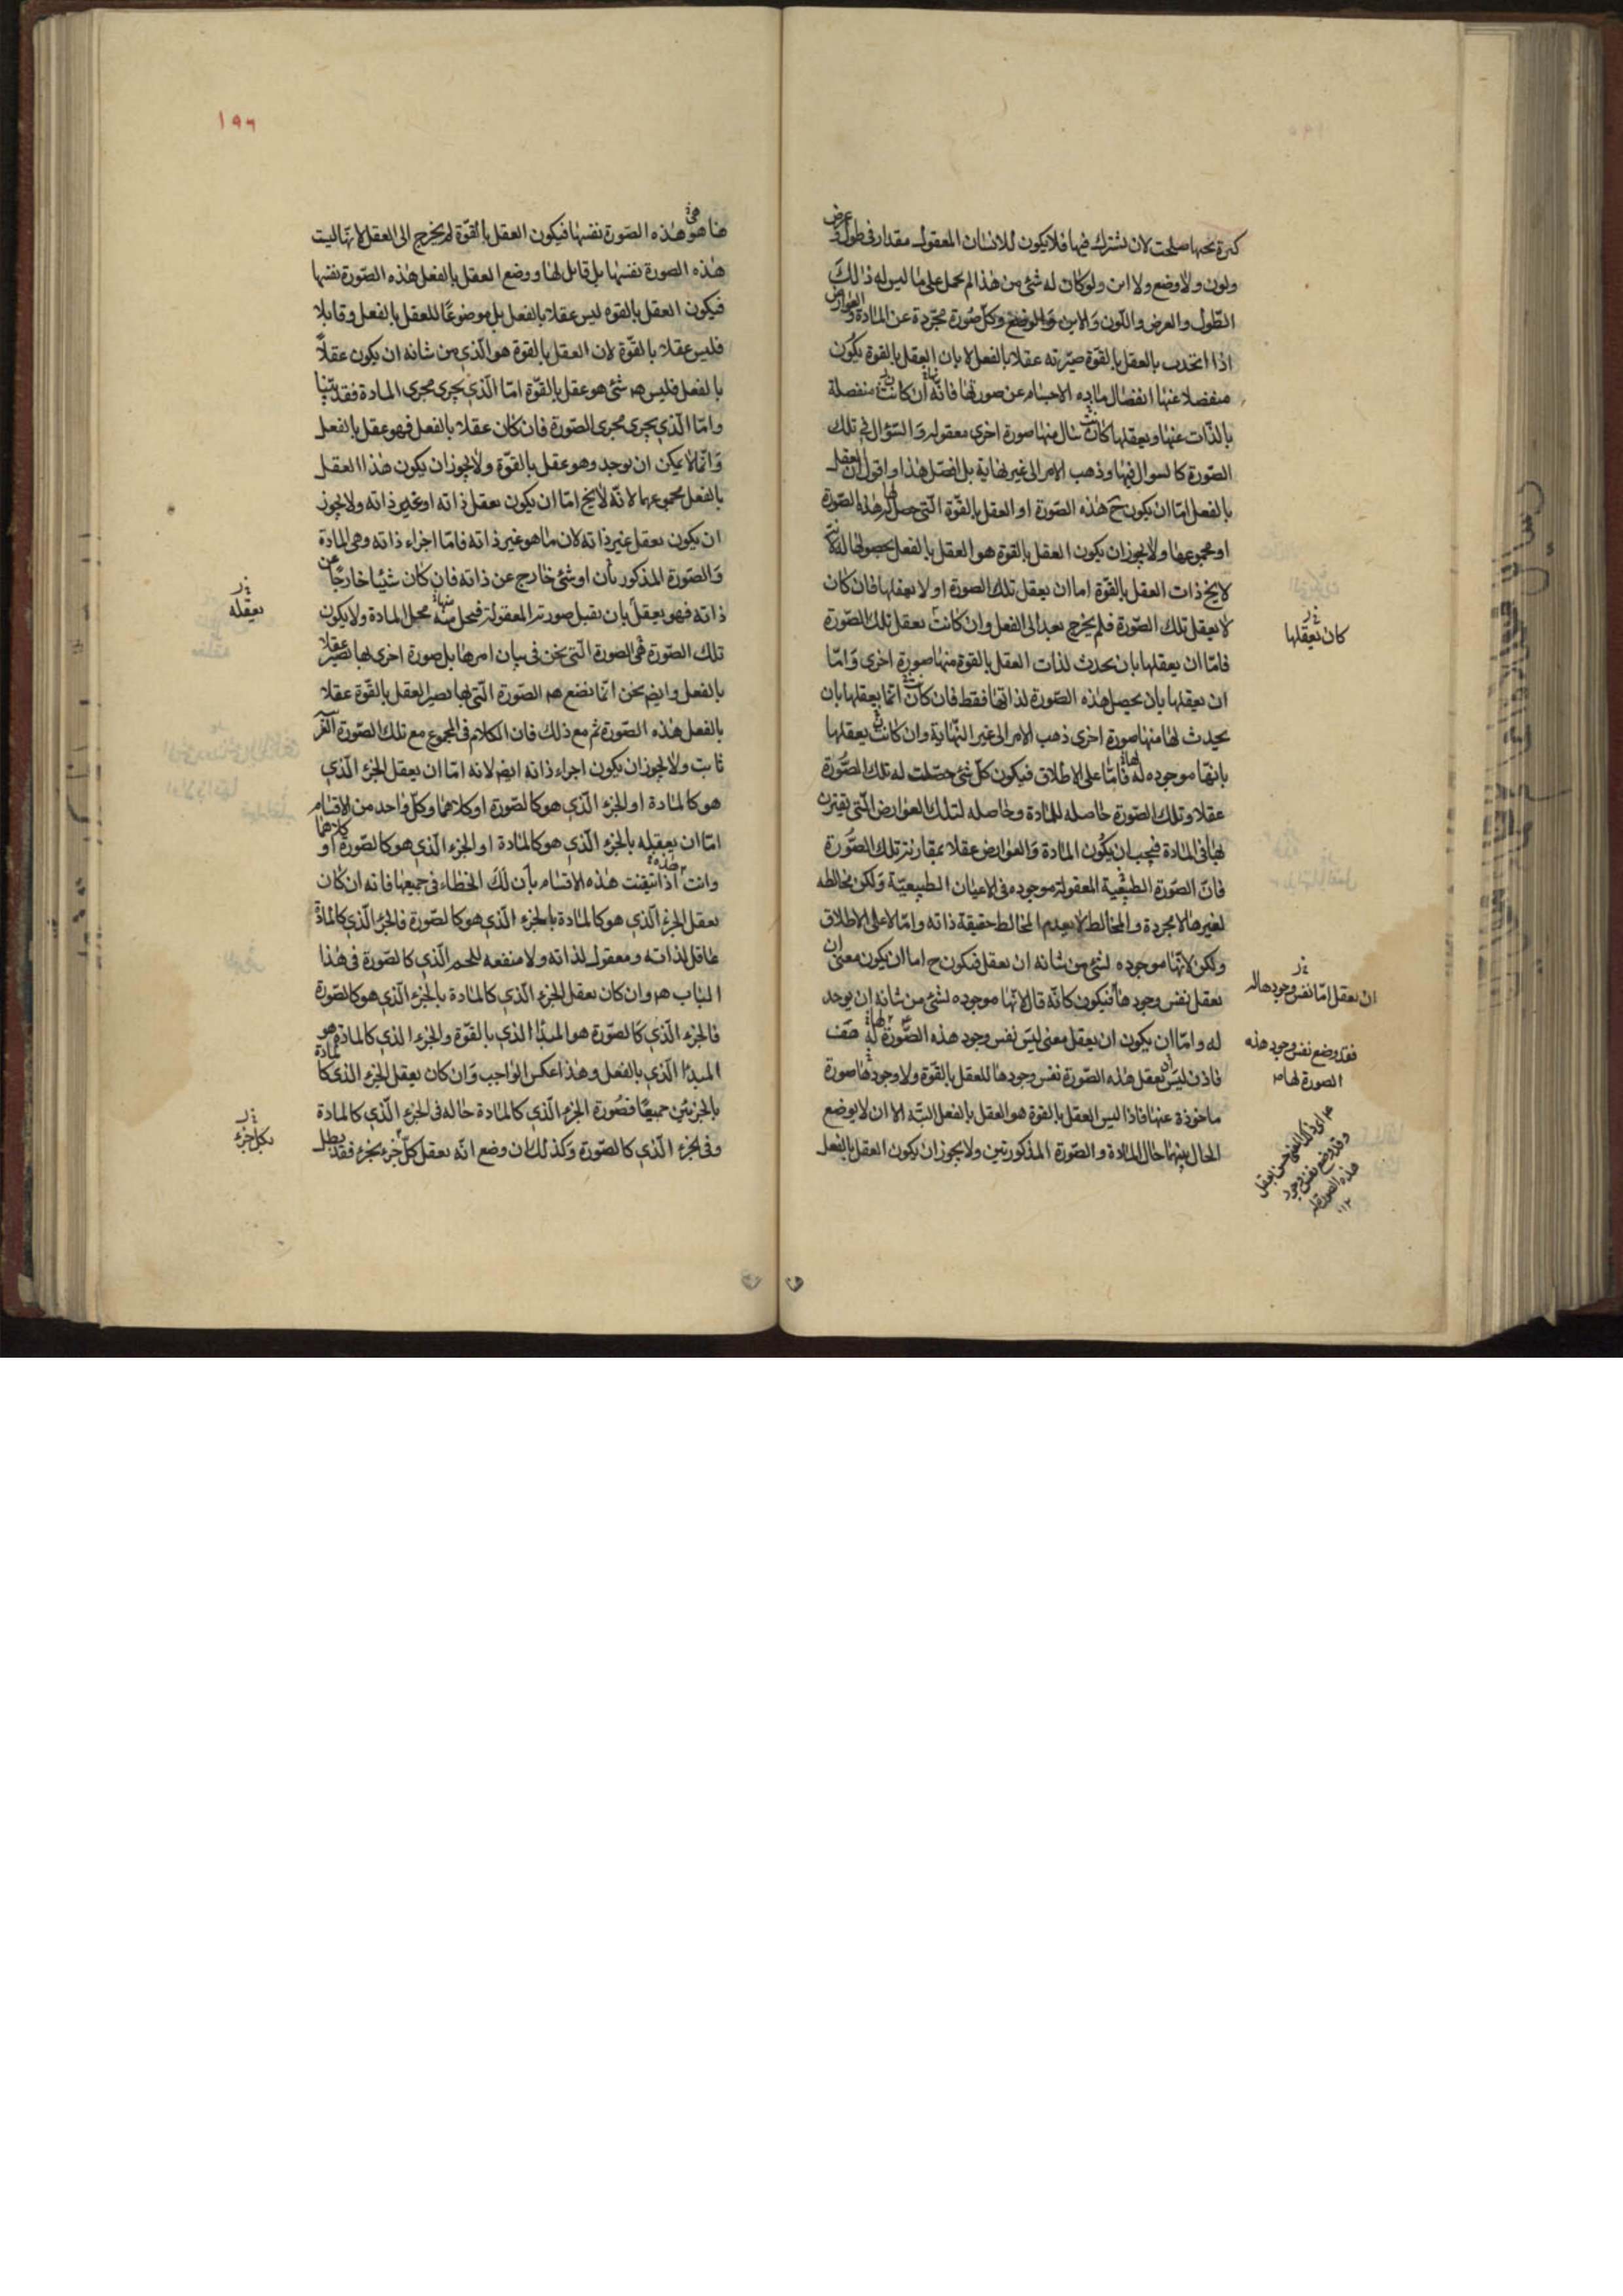 كثرة نحبها صلحت لان تشترك فيها فلا يكون للانسان المعقول مقدار فى طول و عرض
ولون ولا وضع ولا اين ولو كان له شئ من هذا لم يحمل على ما ليس له ذلك
الطول والعرض واللون والاين والوضع وكل صورة مجردة عن المادة و العوارض
اذا اتحدت بالعقل بالقوة صيرته عقلا بالفعل لا بان العقل بالقوة يكون
منفصلا عنها انفصال مادة الاجسام عن صورتها فانه ان كانت منفصلة
بالذات عنها ويعقلها كانت تنال منها صورة اخرى معقولة والسؤال فى تلك
الصورة كالسوال فيها وذهب الامر الى غير نهاية بل افصل هذا واقول ان العقل
بالفعل اما ان يكون ح هذه الصورة او العقل بالقوة التى حصل لها هذه الصورة
او مجموعهما ولا يجوز ان يكون العقل بالقوة هو العقل بالفعل لحصولها له لانه
لا يخ ذات العقل بالقوة اما ان يعقل تلك الصورة او لا يعقلها فان كان
لا يعقل تلك الصورة فلم يخرج بعد الى الفعل وان كانت يعقل تلك الصورة
كان يعقلها
فاما ان يعقلها بان يحدث لذات العقل بالقوة منها صورة اخرى واما
ان يعقلها بان يحصل هذه الصورة لذاتها فقط فان كانت انما يعقلها بان
يحدث لها منها صورة اخرى ذهب الامر الى غير النهاية وان كانت يعقلها
بانها موجوده له لها فاما على الاطلاق فيكون كل شئ حصلت له تلك الصورة
عقلا وتلك الصورة حاصله للمادة وحاصله لتلك العوارض التى تقترن
بها فى المادة فيجب ان يكون المادة والعوارض عقلا بمقارنة تلك الصورة
فان الصورة الطبيعية المعقولة موجوده فى الاعيان الطبيعية ولكن مخالطه
لغيرها لا مجردة والمخالط لا يعدم المخالط حقيقة ذاته واما لا على الاطلاق
ولكن لانها موجوده لشئ من شانه ان يعقل فيكون ح اما ان يكون معنى ان
يعقل نفس وجودها فيكون كانه قال لانها موجوده لشئ من شانه ان يوجد
ان يعقل اما نفس وجودها له
له واما ان يكون ان يعقل معنى ليس نفس وجود هذه الصورة له لها صف
فقد وضع نفس وجود هذه
الصورة لها
فاذن ليس ان يعقل هذه الصورة نفس وجودها للعقل بالقوة ولا وجودها صورة
ماخوذة عنها فاذا ليس العقل بالقوة هو العقل بالفعل البتة الا ان لا يوضع
الحال بينهما حال المادة والصورة المذكورتين ولا يجوز ان يكون العقل بالفعل
وقد وضع نفس وجود
هذه الصورة له
١٩٦
هنا هو هى هذه الصورة نفسها فيكون العقل بالقوة لم يخرج الى العقل لانها ليست
هذه الصورة نفسها بل قابل لها ووضع العقل بالفعل هذه الصورة نفسها
فيكون العقل بالقوه ليس عقلا بالفعل بل موضوعا للعقل بالفعل وقابلا
فليس عقلا بالقوة لان العقل بالقوة هو الذى من شانه ان يكون عقلا
بالفعل فليس هه شئ هو عقل بالقوة اما الذى يجرى مجرى المادة فقد بينا
واما الذى يجرى مجرى الصورة فان كان عقلا بالفعل فهو عقل بالفعل
دائما لا يمكن ان يوجد وهو عقل بالقوة ولا يجوز ان يكون هذا العقل
بالفعل مجموعهما لانه لا يخ اما ان يكون يعقل ذاته او غير ذاته ولا يجوز
ان يكون يعقل غير ذاته لان ما هو غير ذاته فاما اجزاء ذاته وهى المادة
والصورة المذكورتان او شئ خارج عن ذاته فان كان شيئا خارجا عن
ذاته فهو يعقل بان يقبل صورته المعقولة فيحل منه منها محل المادة ولا يكون
يعقله
تلك الصورة هى الصورة التى نحن فى بيان امرها بل صورة اخرى بها يصير عقلا
بالفعل وايض نحن انما نضع هه الصورة التى بها يصير العقل بالقوة عقلا
بالفعل هذه الصورة ثم مع ذلك فان الكلام فى المجموع مع تلك الصورة الغر
ثابت ولا يجوز ان يكون اجزاء ذاته ايض لانه اما ان يعقل الجزء الذى
هو كالمادة او الجزء الذى هو كالصورة او كلاهما وكل واحد من الاقسام
اما ان يعقله بالجزء الذى هو كالمادة او الجزء الذى هو كالصورة او كلاهما
وانت اذا تيقنت هذه الاقسام بان لك الخطاء فى جميعها فانه ان كان
يعقل الجزء الذى هو كالمادة بالجزء الذى هو كالصورة فالجزء الذى كالمادة
عاقل لذاته ومعقول لذاته ولا منفعه للجزء الذى كالصورة فى هذا
الباب هه وان كان يعقل الجزء الذى كالمادة بالجزء الذى هو كالصورة
فالجزء الذى كالصورة هو المبدا الذى بالقوة والجزء الذى كالمادة هو
المبدا الذى بالفعل وهذا عكس الواجب وان كان يعقل الجزء الذى كالمادة
بالجزئين جميعا فصورة الجزء الذى كالمادة حاله فى الجزء الذى كالمادة
وفى الجزء الذى كالصورة وكذلك ان وضع انه يعقل كل جزء بجزء فقد بطل
بكل جزء